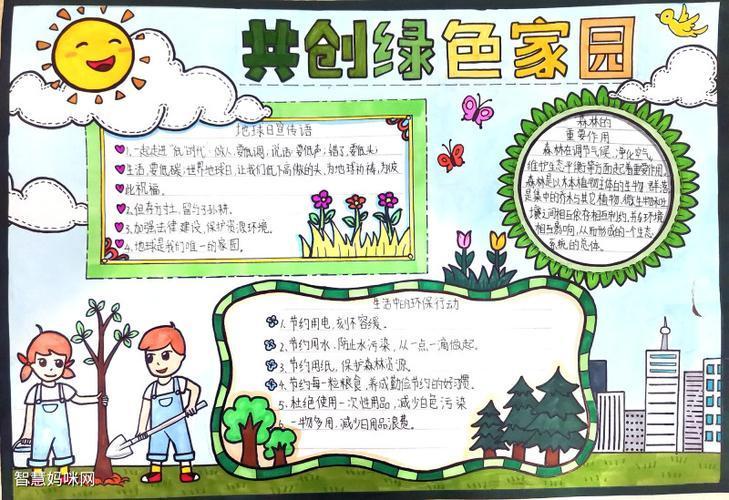 共创绿色家园
地球日宣传语
1.一起走进“低”时代：做人，要低调，说话，要低声；错了，要低头；
生活，要低碳；世界地球日，让我们低下高傲的头，为地球祈祷，为彼
此祝福。
2.但存方寸土，留与子孙耕。
3.加强法律建设，保护资源环境。
4.地球是我们唯一的家园。
森林的
重要作用
森林在调节气候、净化空气、
维护生态平衡等方面起着重要作用。
森林是以木本植物为主体的生物群落，
是集中的乔木与其它植物、微生物和土
壤之间相互依存相互制约，并与环境
相互影响，从而形成的一个生态
系统的总体。
生活中的环保行动
1.节约用电，刻不容缓。
2.节约用水，防止水污染，从一点一滴做起。
3.节约用纸，保护森林资源。
4.节约每一粒粮食，养成勤俭节约的好习惯。
5.杜绝使用一次性用品，减少白色污染
6.一物多用，减少日用品浪费。
智慧妈咪网